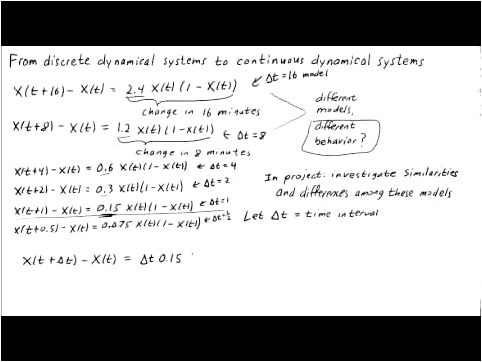 From discrete dynamical systems to continuous dynamical systems
X(t+16) - X(t) = 2.4 X(t) (1 - X(t)) ← Δt=16 model
change in 16 minutes
X(t+8) - X(t) = 1.2 X(t) (1 - X(t)) ← Δt=8
change in 8 minutes
different
models,
different
behavior?
X(t+4) - X(t) = 0.6 X(t)(1 - X(t)) ← Δt=4
X(t+2) - X(t) = 0.3 X(t)(1 - X(t)) ← Δt=2
X(t+1) - X(t) = 0.15 X(t)(1 - X(t)) ← Δt=1
X(t+0.5) - X(t) = 0.075 X(t)(1 - X(t)) ← Δt=½
In project: investigate similarities
and differences among these models
Let Δt = time interval
X(t+Δt) - X(t) = Δt 0.15